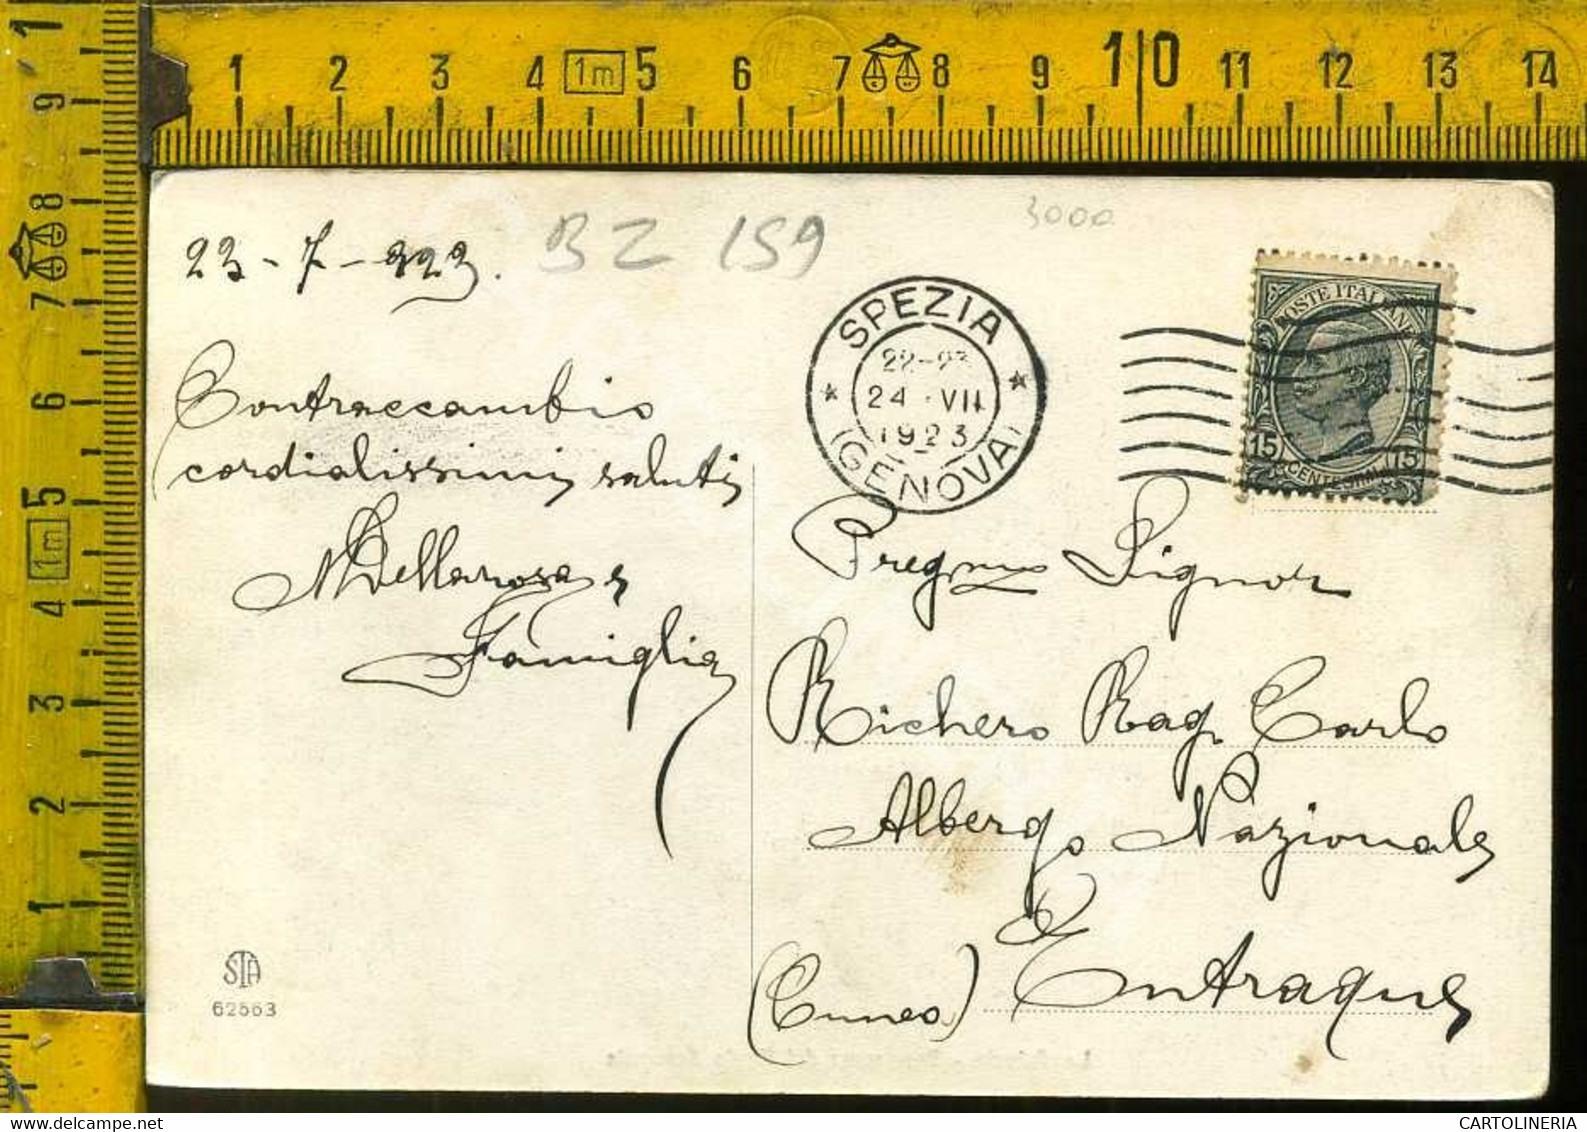 23-7-923.
BZ 159
3000
SPEZIA
22-23
24·VII
1923
(GENOVA)
POSTE ITALIANE
15 CENTESIMI 15
Contraccambio
cordialissimi saluti
Dellarosa e
Famiglia
Pregmo Signor
Richero Rag. Carlo
Albergo Nazionale
Entraque
(Cuneo)
STA
62563
1 2 3 4 1m 5 6 7 8 9 10 11 12 13 14
1 9 8 7 6 5 1m 4 3 2 1
CARTOLINERIA